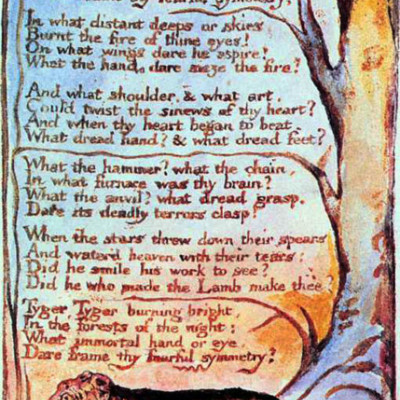 In what distant deeps or skies
Burnt the fire of thine eyes!
On what wings dare he aspire!
What the hand, dare sieze the fire?
And what shoulder, & what art,
Could twist the sinews of thy heart?
And when thy heart began to beat,
What dread hand? & what dread feet?
What the hammer? what the chain,
In what furnace was thy brain?
What the anvil? what dread grasp,
Dare its deadly terrors clasp!
When the stars threw down their spears
And water'd heaven with their tears:
Did he smile his work to see?
Did he who made the Lamb make thee?
Tyger Tyger burning bright,
In the forests of the night:
What immortal hand or eye,
Dare frame thy fearful symmetry?